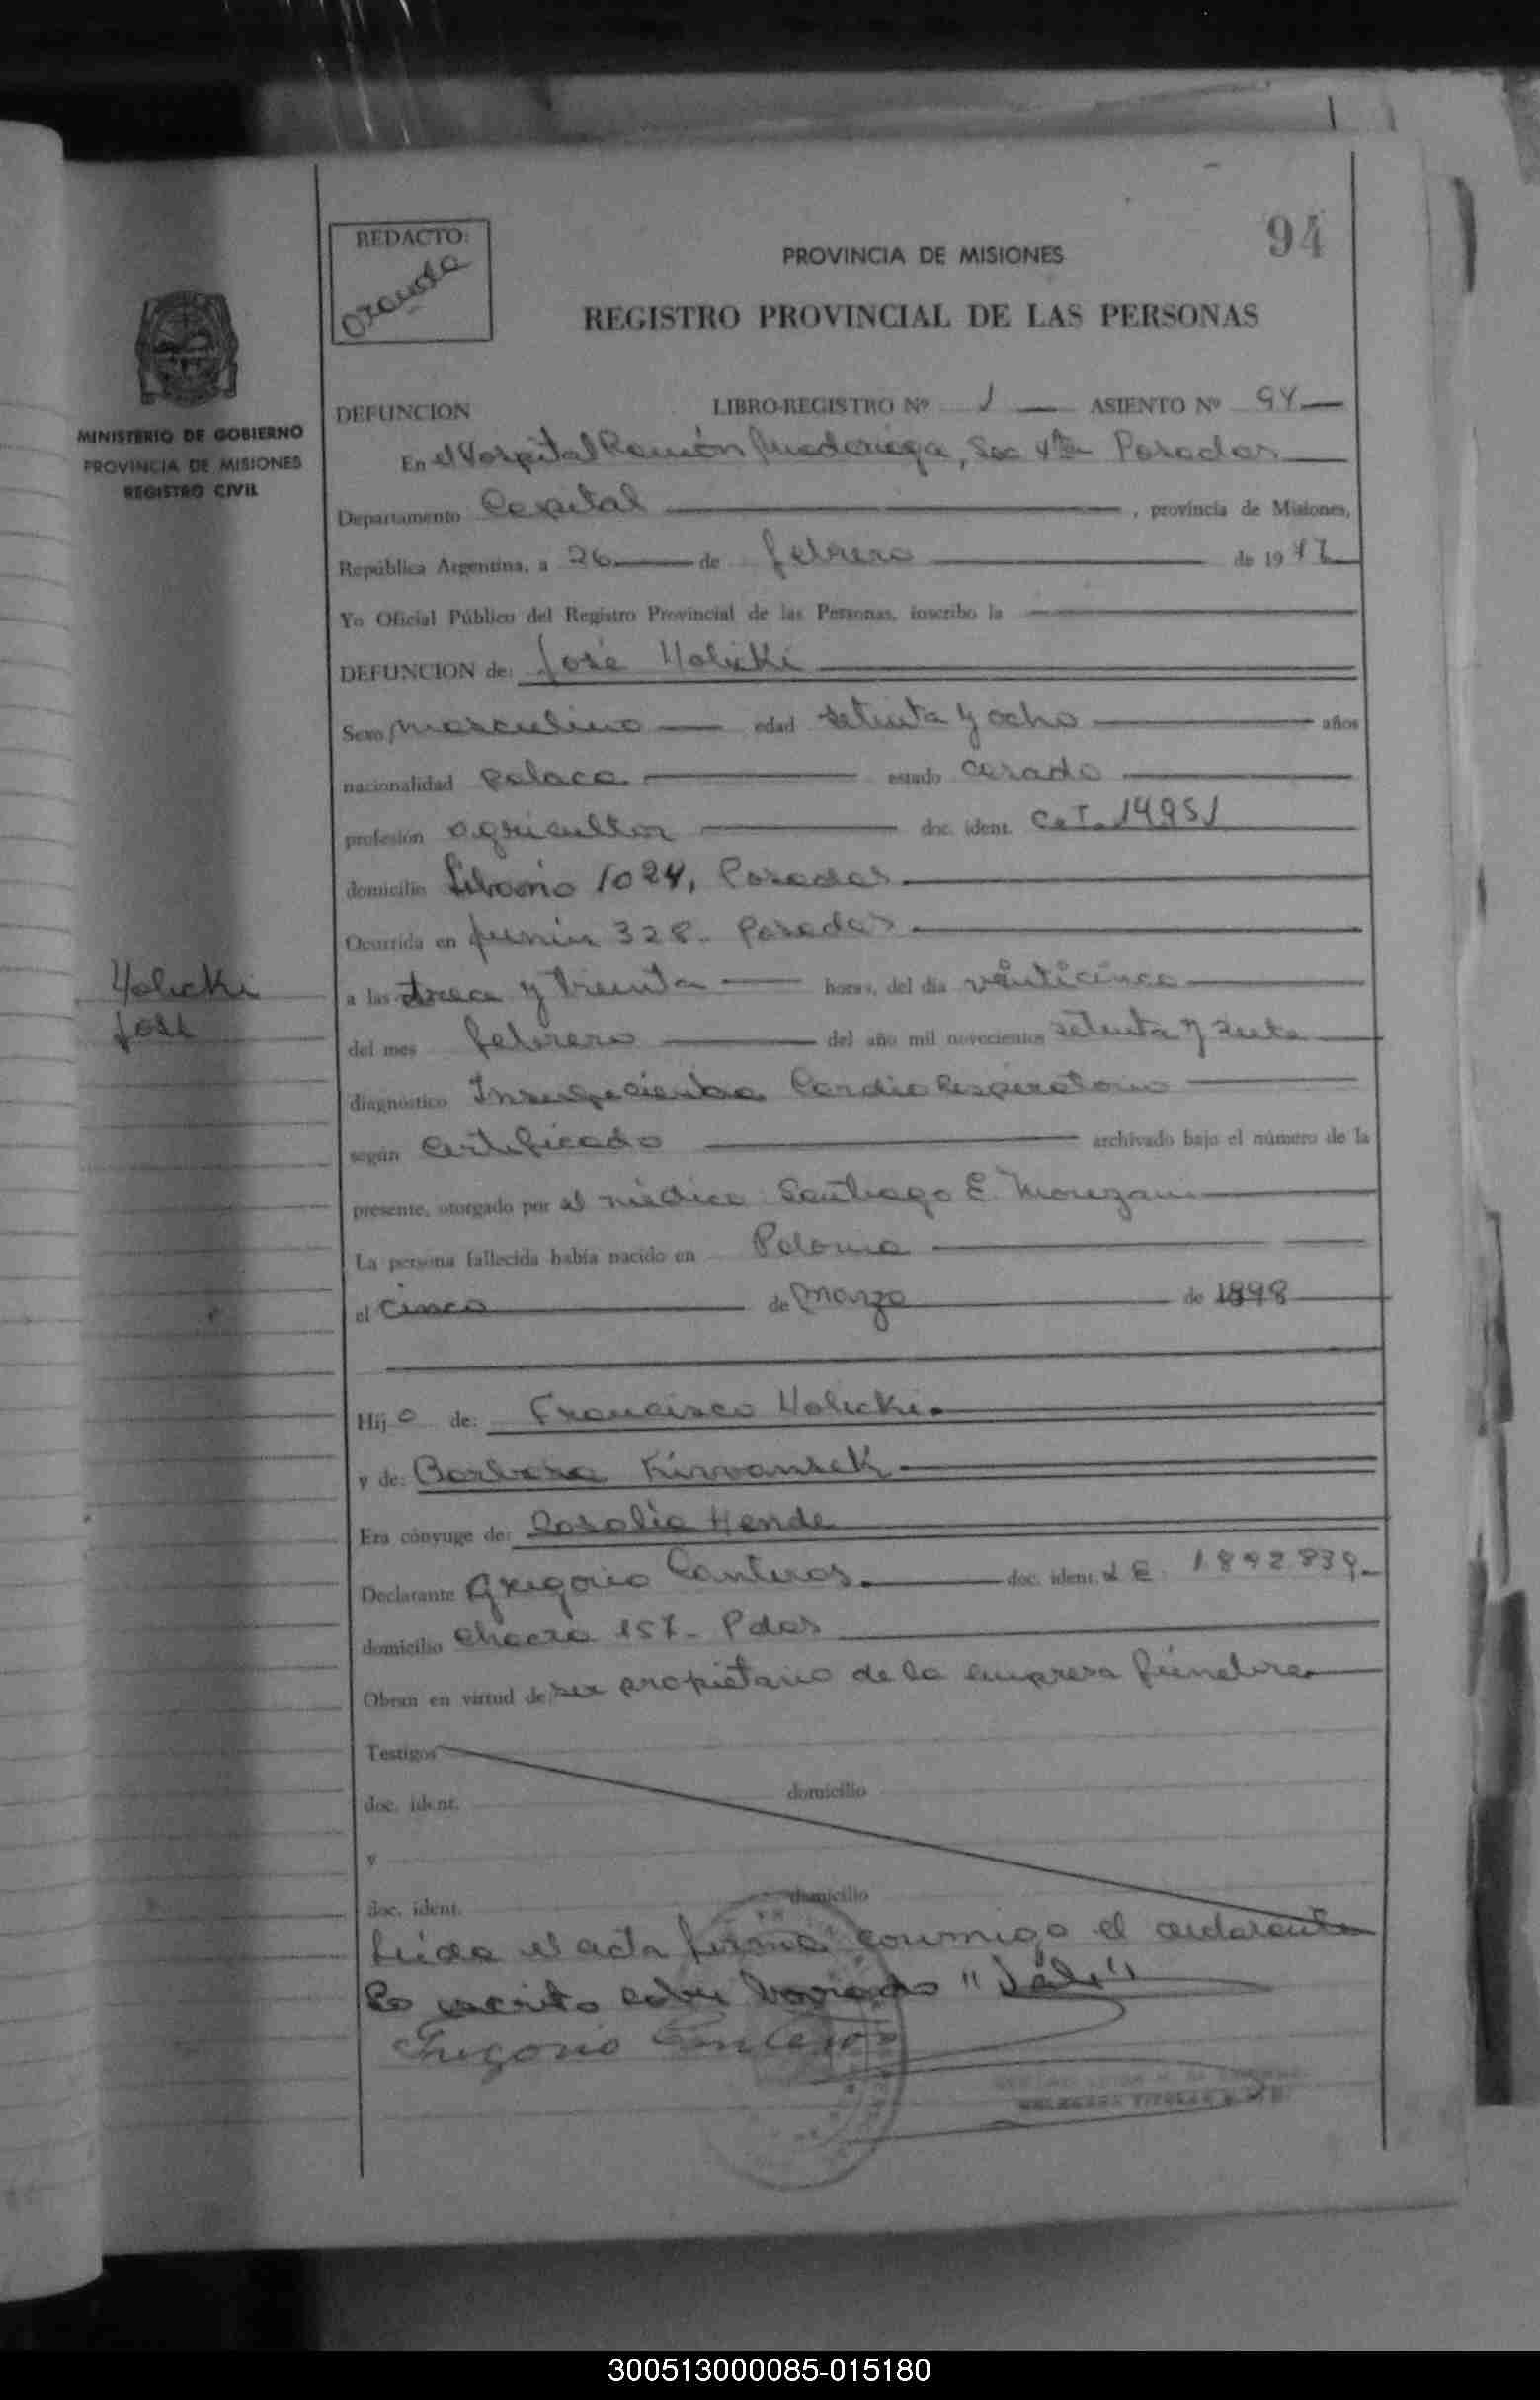 94
REDACTO:
PROVINCIA DE MISIONES
REGISTRO PROVINCIAL DE LAS PERSONAS
MINISTERIO DE GOBIERNO
PROVINCIA DE MISIONES
REGISTRO CIVIL
DEFUNCION LIBRO-REGISTRO Nº 1 ASIENTO Nº 94
En el Hospital Ramón Madariaga, Sec 4ta Posadas
Departamento Capital , provincia de Misiones,
República Argentina, a 26 de febrero de 1977
Yo Oficial Público del Registro Provincial de las Personas, inscribo la
DEFUNCION de: José Halicki
Sexo masculino edad setenta y ocho años
nacionalidad polaca estado casado
profesión agricultor doc. ident. C.I. 14951
domicilio 1024, Posadas
Ocurrida en Junín 328. Posadas
Halicki
José
a las trece y treinta horas, del día veinticinco
del mes febrero del año mil novecientos setenta y siete
diagnóstico Insuficiencia Cardio Respiratoria
según certificado archivado bajo el número de la
presente, otorgado por el médico Santiago E.
La persona fallecida había nacido en Polonia
el cinco de marzo de 1898
Hij o de: Francisco Halicki
y de: Barbara
Era cónyuge de: Rosalia Hende
Declarante Gregorio Canteros doc. ident. L E. 1.892.839
domicilio chacra 157- Pdas
Obran en virtud de ser propietario de la empresa fúnebre
Testigos
doc. ident. domicilio
y
doc. ident. domicilio
Leída el acta firma conmigo el declarante
Lo escrito sobre borrado "Vale"
Gregorio Canteros
300513000085-015180